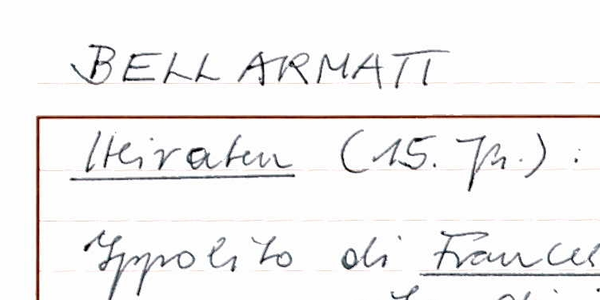 BELLARMATI
Heiraten (15. Jh.) :
Ippolito di